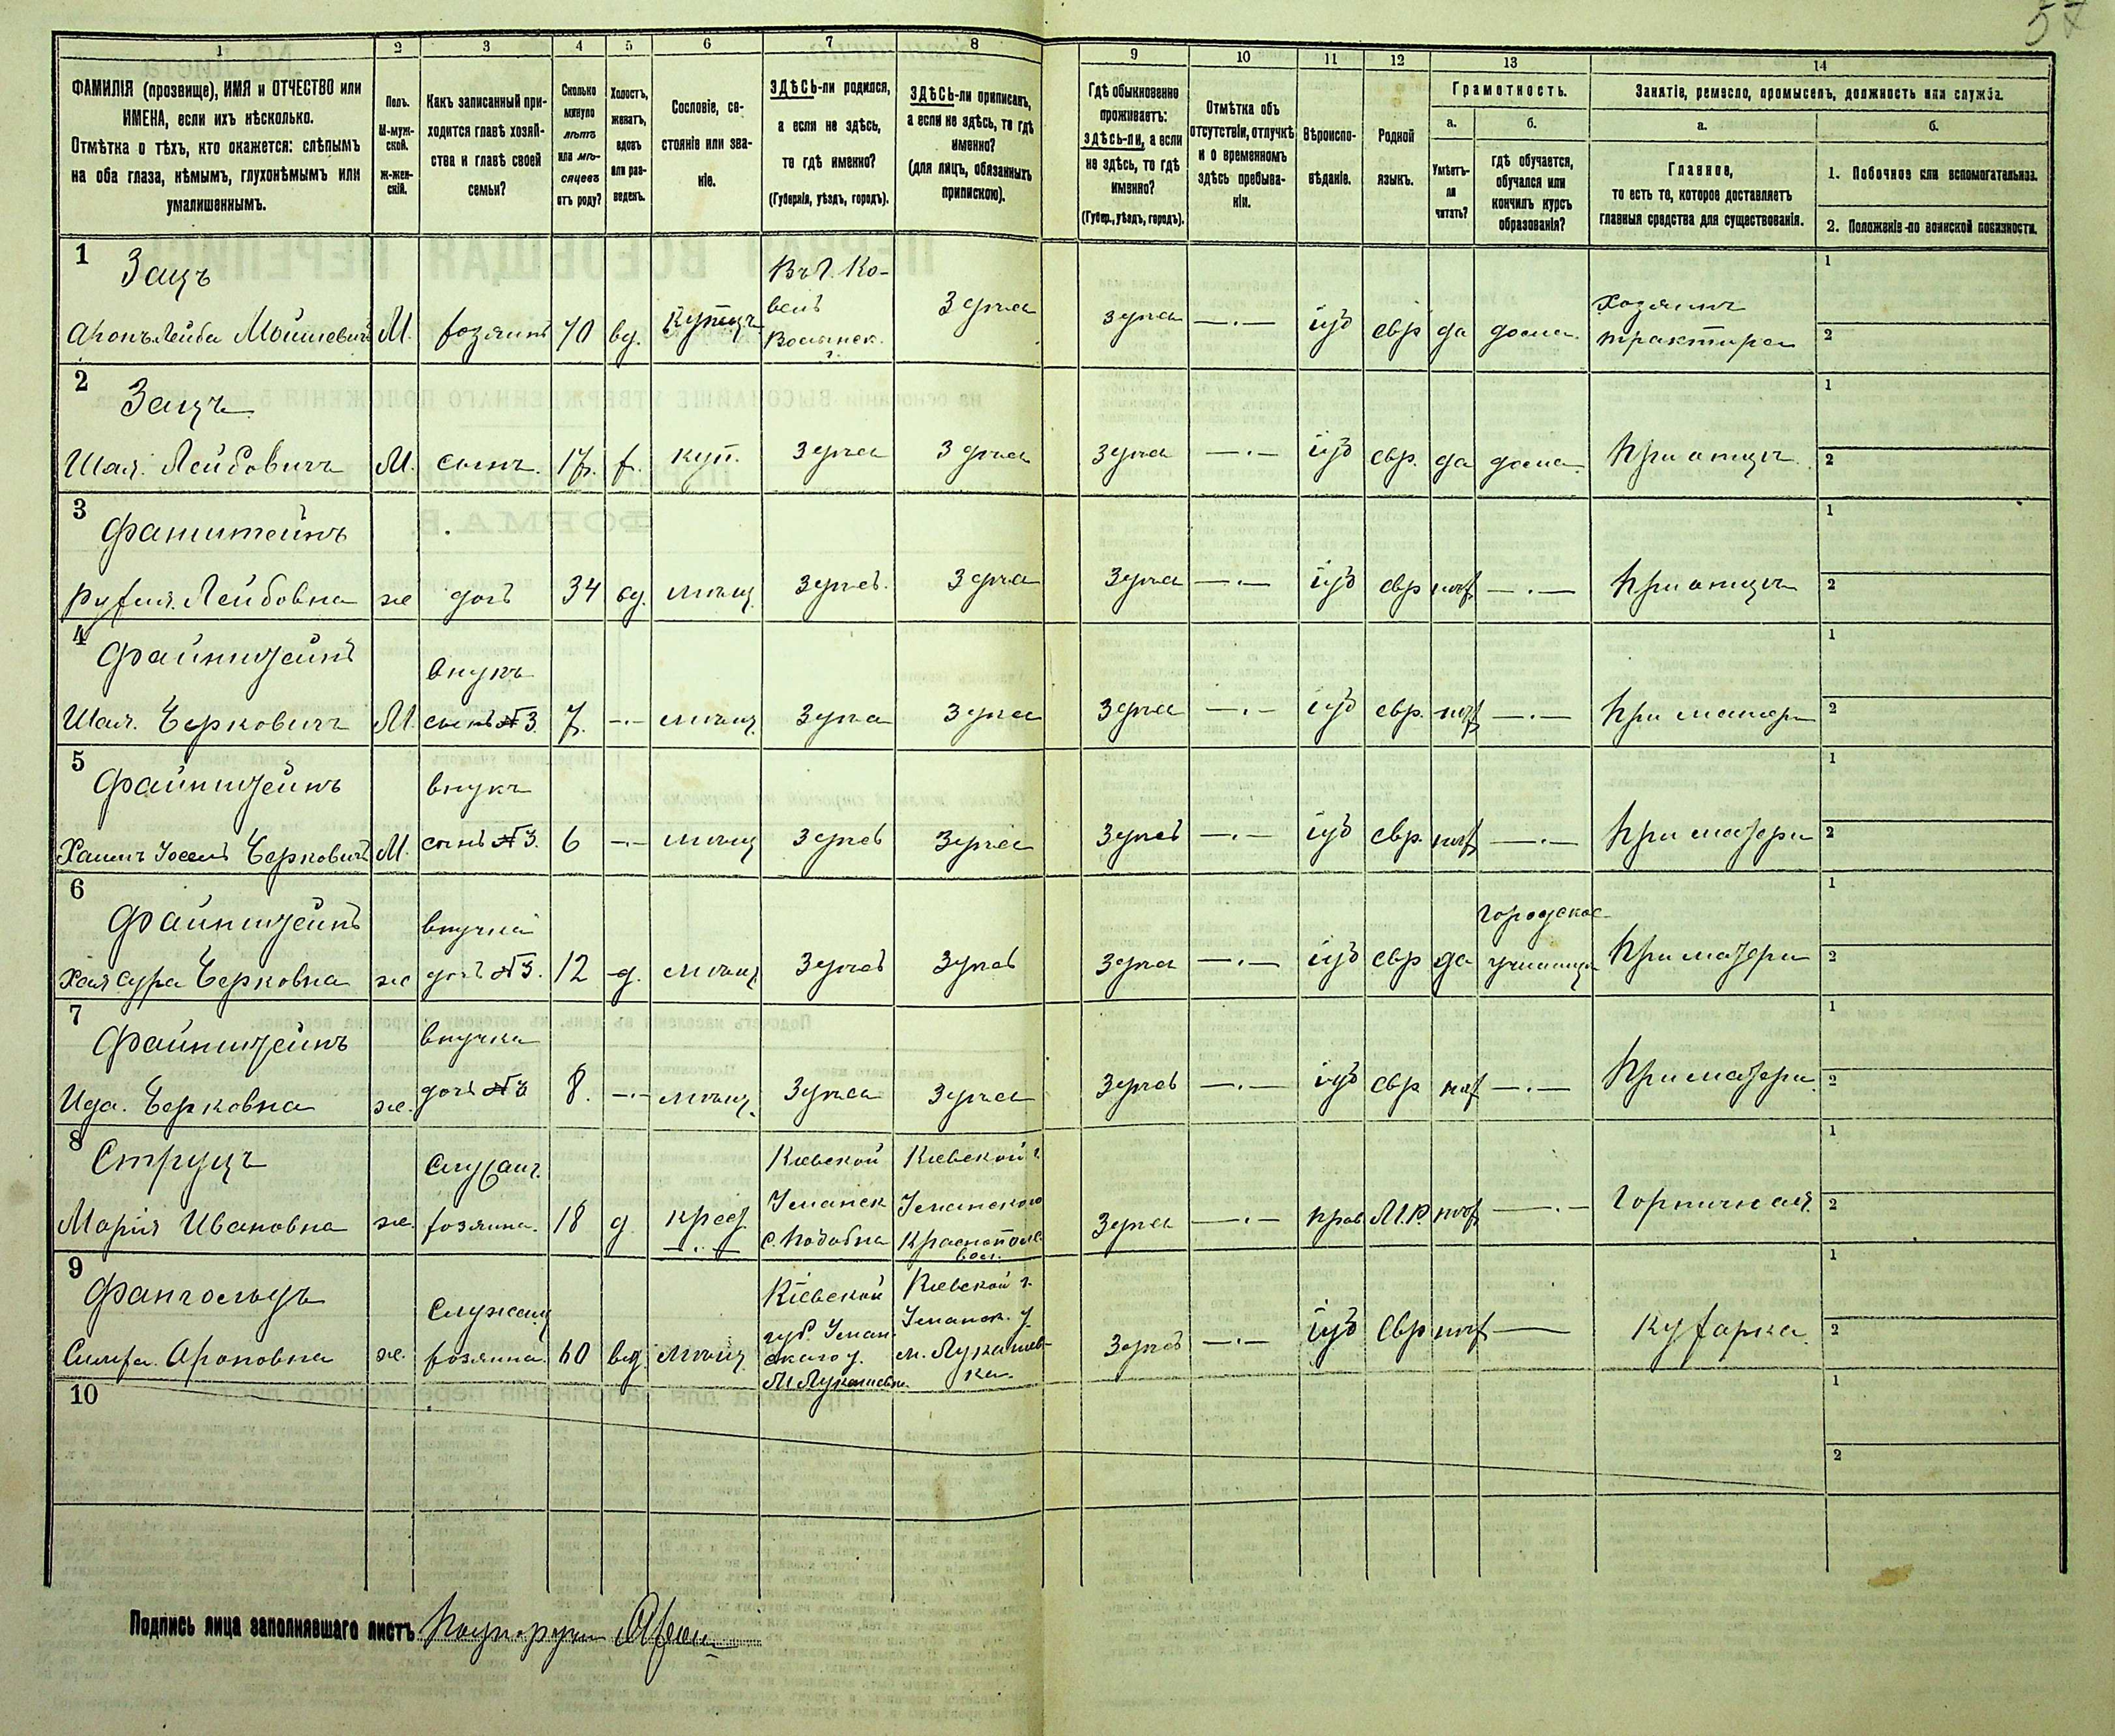 57
1 2 3 4 5 6 7 8 9 10 11 12 13 14
ФАМИЛІЯ (прозвище), ИМЯ и ОТЧЕСТВО или
ИМЕНА, если ихъ нѣсколько.
Отмѣтка о тѣхъ, кто окажется: слѣпымъ
на оба глаза, нѣмымъ, глухонѣмымъ или
умалишеннымъ.
Полъ.
М-муж-
ской.
Ж-жен-
скій.
Какъ записанный при-
ходится главѣ хозяй-
ства и главѣ своей
семьи?
Сколько
минуло
лѣтъ
или мѣ-
сяцевъ
отъ роду?
Холостъ,
женатъ,
вдовъ
или раз-
веденъ.
Сословіе, со-
стояніе или зва-
ніе.
ЗДѢСЬ-ли родился,
а если не здѣсь,
то гдѣ именно?
(Губернія, уѣздъ, городъ).
ЗДѢСЬ-ли приписанъ,
а если не здѣсь, то гдѣ
именно?
(для лицъ, обязанныхъ
припискою).
Гдѣ обыкновенно
проживаетъ:
ЗДѢСЬ-ли, а если
не здѣсь, то гдѣ
именно?
(Губер., уѣздъ, городъ).
Отмѣтка объ
отсутствіи, отлучкѣ
и о временномъ
здѣсь пребыва-
ніи.
Вѣроиспо-
вѣданіе.
Родной
языкъ.
Грамотность.
а.
Умѣетъ-
ли
читать?
б.
гдѣ обучается,
обучался или
кончилъ курсъ
образованія?
Занятіе, ремесло, промыселъ, должность или служба.
а.
Главное,
то есть то, которое доставляетъ
главныя средства для существованія.
б.
1. Побочное или вспомогательное.
2. Положеніе по воинской повинности.
1
Зацъ
Аронъ Лейба Мошкевичъ М. хозяинъ 70 вд. Купецъ
Въ г. Ко-
вель
Волынск.
г.
Здѣсь Здѣсь —·— іуд евр да дома.
Хозяинъ
трактира
1
2
2
Зацъ
Шая. Лейбовичъ М. сынъ. 17. х. куп. Здѣсь Здѣсь Здѣсь —·— іуд евр. да дома При отцѣ.
1
2
3
Фанштейнъ
Рухля. Лейбовна же дочь 34 вд. мѣщ. Здѣсь Здѣсь Здѣсь —·— іуд евр нѣт —·— При отцѣ
1
2
4
Файнштейнъ
внукъ
Шая. Берковичъ М. сынъ №3. 7. —·— мѣщ. Здѣсь Здѣсь Здѣсь —·— іуд евр. нѣт —·— При матери
1
2
5
Файнштейнъ
внукъ
Хаимъ Іосель Берковичъ М. сынъ №3. 6 —·— мѣщ Здѣсь Здѣсь Здѣсь —·— іуд евр. нѣт —·— При матери
1
2
6
Файнштейнъ
внучка
Хая Сура Берковна же дочь №3. 12 д. мѣщ Здѣсь Здѣсь Здѣсь —·— іуд евр да
Городское
училище
При матери
1
2
7
Файнштейнъ
внучка
Ида. Берковна же. дочь №3 8. —·— мѣщ. Здѣсь Здѣсь Здѣсь —·— іуд евр нѣт —·— При матери.
1
2
8
Струцъ
Служащ.
Марія Ивановна же. хозяина. 18 д. крест
—·—
Кіевской
Уманск
с. Подобна
Кіевской г.
Уманского
Краснополс.
вол.
Здѣсь —·— прав М.Р. нѣт —·— Горничная.
1
2
9
Служащ
Сима. Ароновна же. хозяина. 60 вд мѣщ
Кіевской
губ. Уман-
скаго у.
М Лукашевк.
Кіевской г.
Уманск. у.
м. Лукашев-
ка.
Здѣсь —·— іуд Евр нѣт — Кухарка.
1
2
10
1
2
Подпись лица заполнявшаго листъ